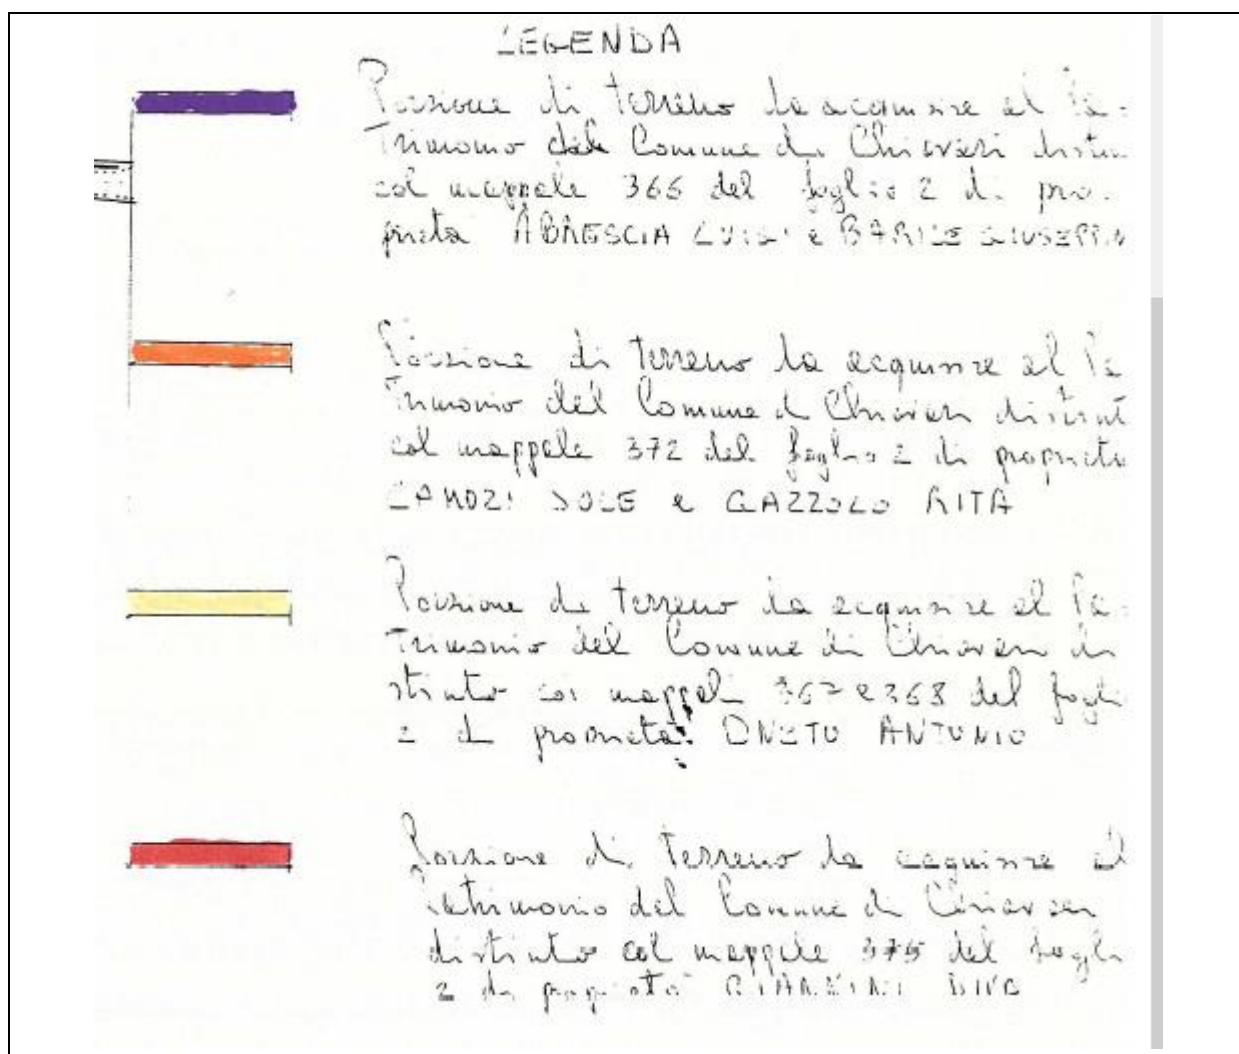 LEGENDA
Porzione di terreno da acquisire al Pa-
trimonio del Comune di Chiavari distin
col mappale 366 del foglio 2 di pro-
prietà ABRESCIA LUIGI e BARILE GIUSEPPIN
Porzione di terreno da acquisire al Pa
trimonio del Comune di Chiavari distint
col mappale 372 del foglio 2 di proprietà
e GAZZOLO RITA
Porzione di terreno da acquisire al Pa-
trimonio del Comune di Chiavari di
stinto coi mappali 367 e 368 del fogli
2 di proprietà: ONETO ANTONIO
Porzione di terreno da acquisire al
Patrimonio del Comune di Chiavari
distinto col mappale 375 del fogli
2 di proprietà